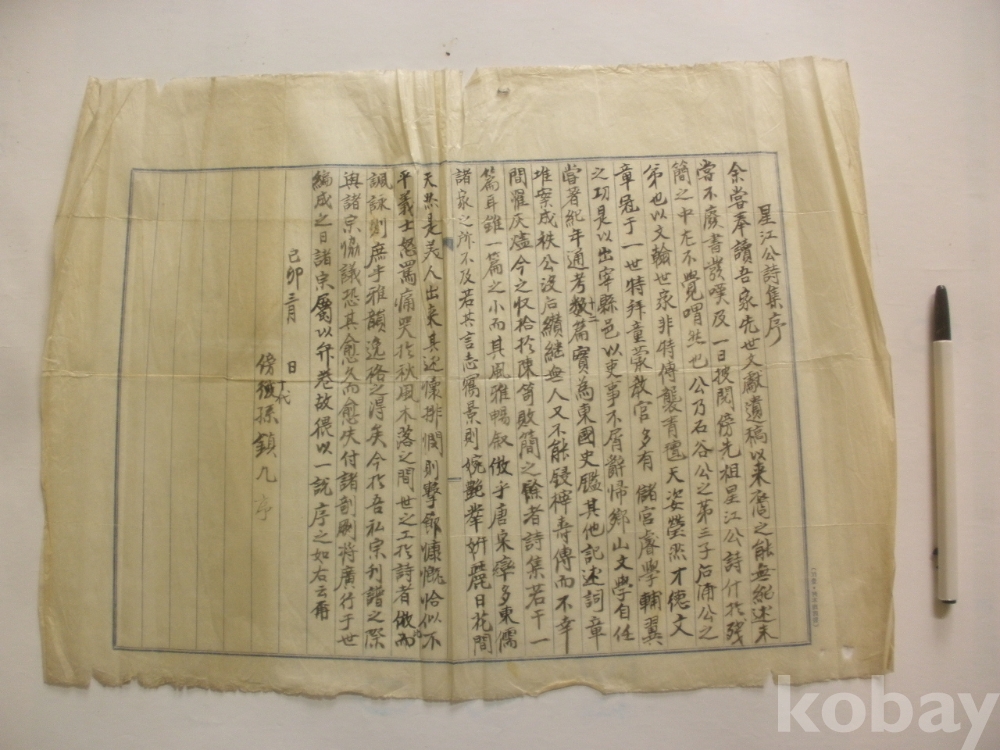 星江公詩集序
余嘗奉讀吾家先世文獻遺稿以来裔之能無紀述未
嘗不廢書發嘆及一日披閱傍先祖星江公詩什於殘
簡之中尤不覺喟然也公乃石谷公之第三子石涌公之
弟也以文翰世家非特傳襲有儘天姿瑩然才德文
章冠于一世特拜童蒙敎官多有儲宮睿學輔翼
之功是以出宰縣邑以吏事不屑辭帰鄕山文學自任
嘗著紀年通考十二篇實爲東國史鑑其他記述詞章
堆案成秩公沒后纘継無人又不能鋟梓壽傳而不幸
間罹灰燼今之収拾於陳笥敗簡之餘者詩集若干一
篇耳雖一篇之小而其風雅暢叙倣乎唐宋率多東儒
諸家之所不及若其言志寫景則婉艶華姸麗日花間
天然是美人出来其述懷排悶則擊節慷慨恰似不
平義士怒罵痛哭於秋風木落之間世之工於詩者倣而
諷詠則庶乎雅韻逸格之得矣今於吾私宗刊譜之際
與諸宗恊議恐其愈久而愈失付諸剞劂将廣行于世
編成之日諸宗属以弁卷故猥以一說序之如右云爾
己卯三月 日
傍 代孫鎭九序
kobay